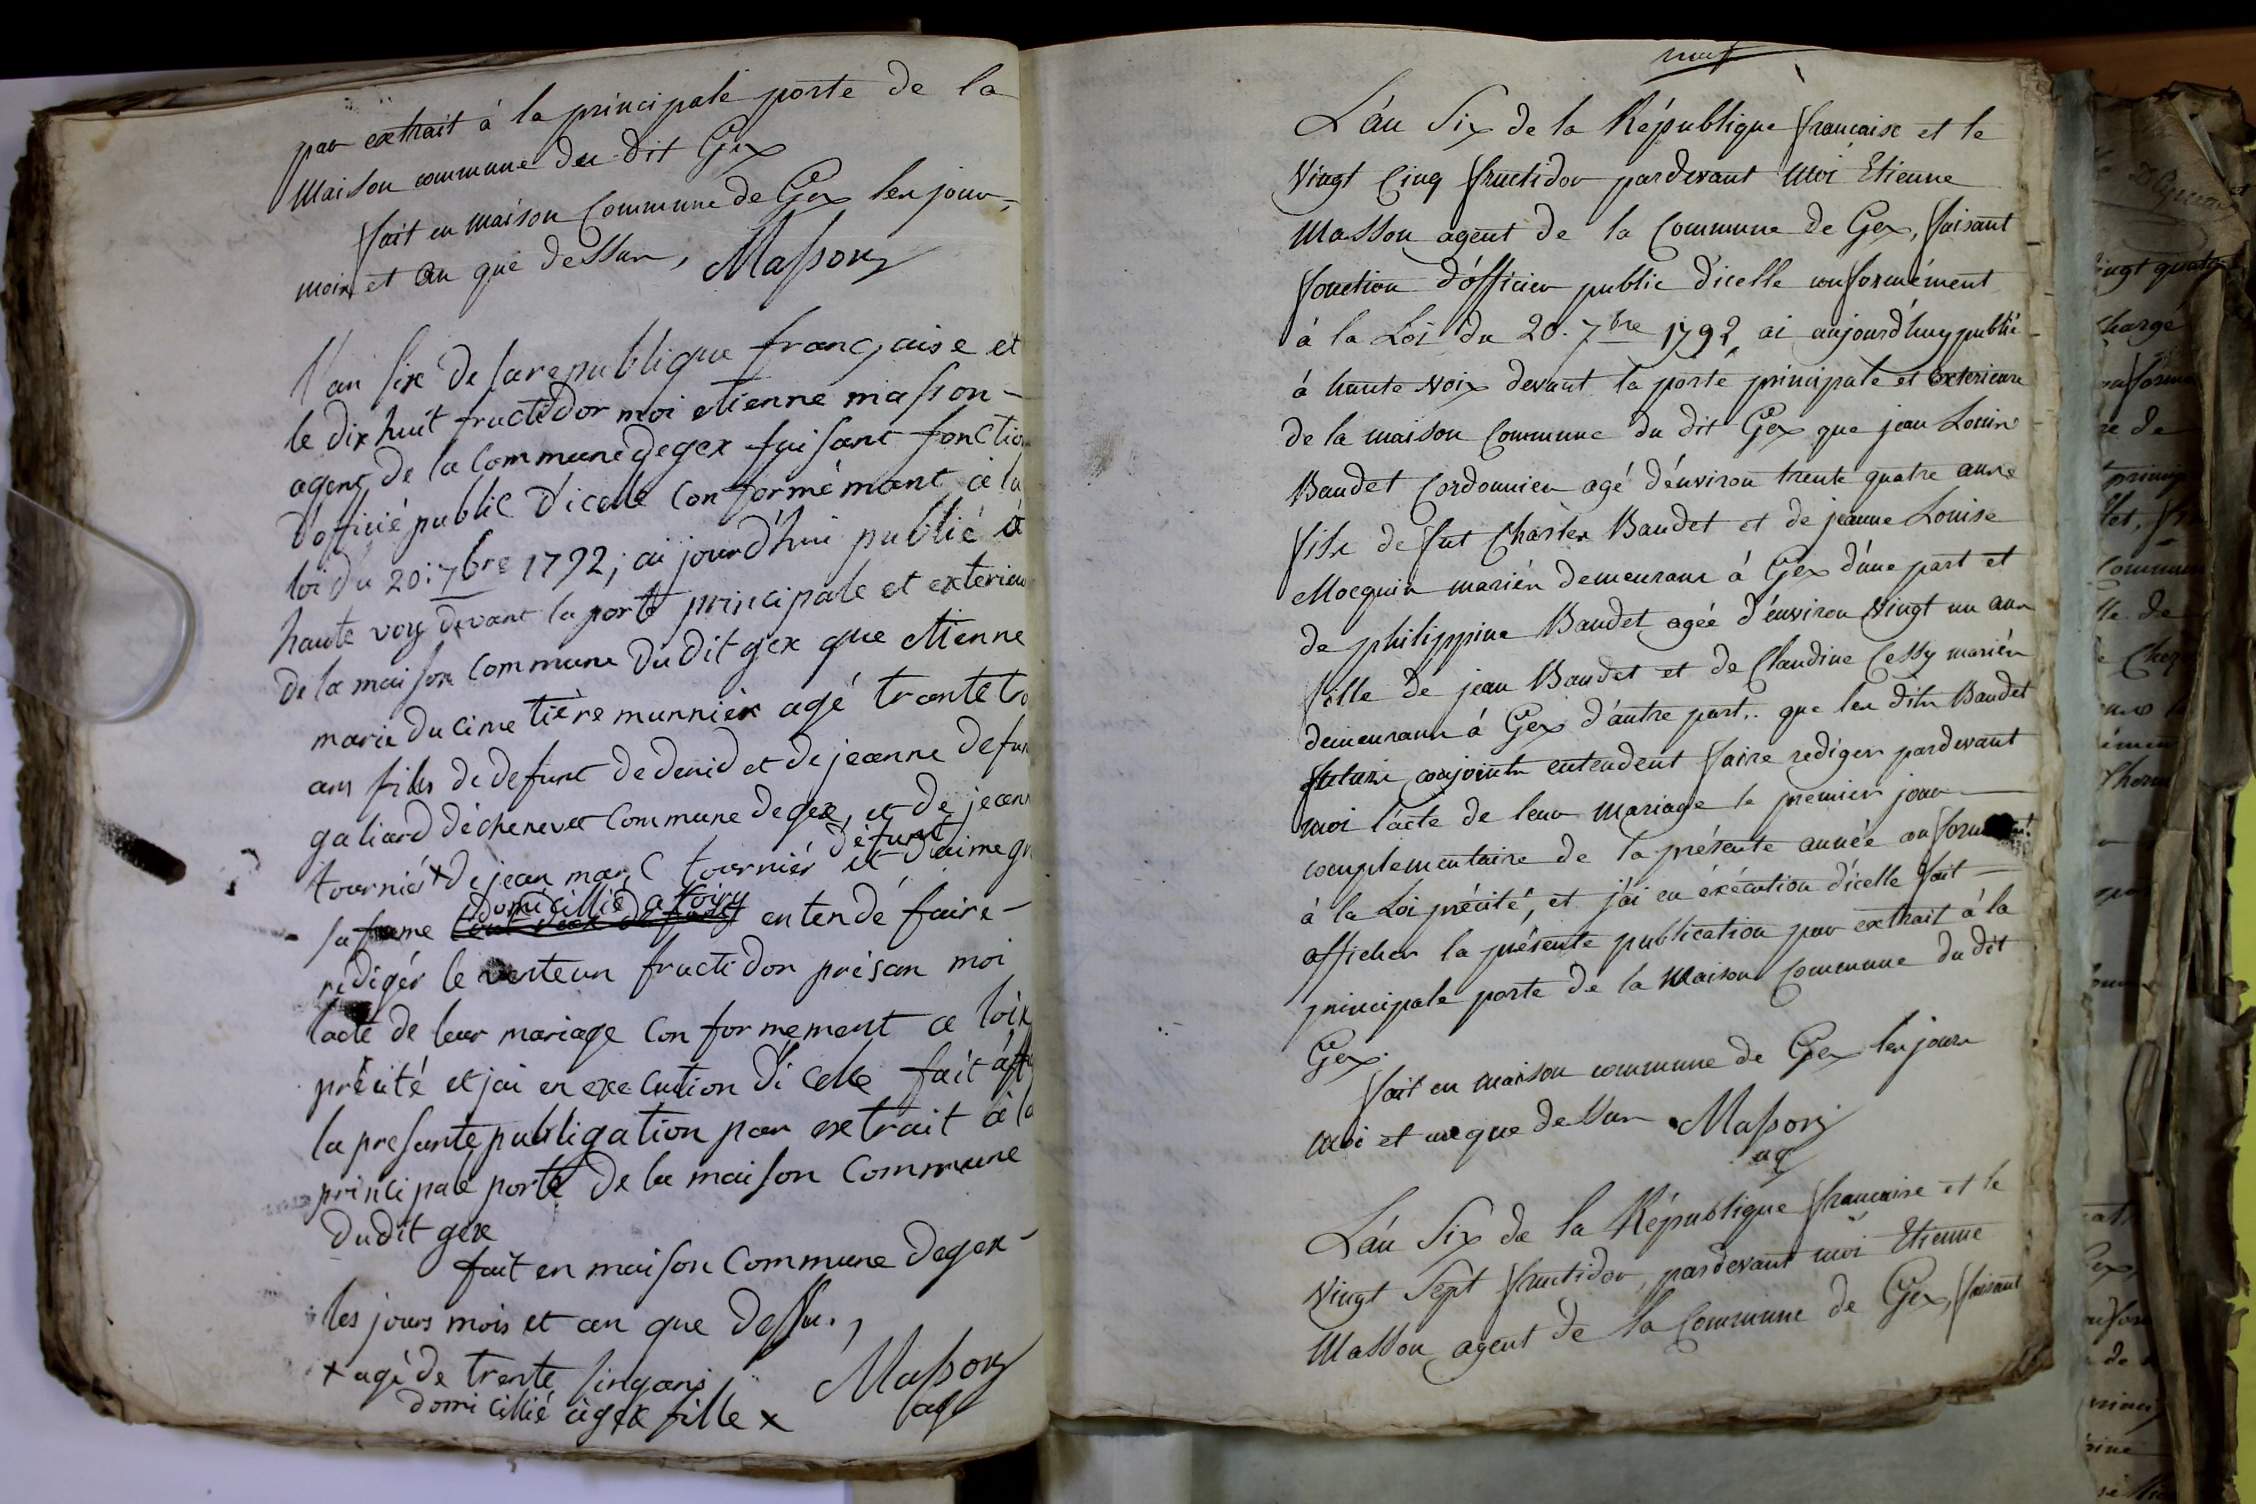 par extrait à la principale porte de la
Maison commune du dit Gex
fait en maison Commune de Gex les jour,
mois et an que dessus, Masson
l'an six de la republique française et
le dix huit fructidor moi etienne masson
agent de la Commune de gex faisant fonction
d'officié public d'icelle Conformémant à la
loi du 20: 7bre 1792; ai jourd'hui publié à
haute voy devant la porte principale et exterieur
de la maison Commune du dit gex que etienne
marie du cimetière munnier agé trante tro
ans fils de defunt de denid et de jeanne defun
galiard décheneves Commune de gex, et de jeann
tourniér + de jean marc tourniér defunt et daime gr
sa fame domicillié a entendé faire
redigér le venteun fructidor présan moi
lacte de leur mariage Conformement a loix
précité et jai en execution di celle fait aff
la presante publigation par extrait à la
principale porte de la maison Commune
dudit gex
fait en maison Commune de gex
les jours mois et an que dessu.,
+ agé de trente sinq ans Masson
domicillié à gex fille x ag
neuf
L'an Six de la République francaise et le
Vingt Cinq fructidor pardevant Moi Etienne
Masson agent de la Commune de Gex, faisant
fonction d'officier public d'icelle conformément
à la Loi du 20. 7bre 1792, ai aujourd'huy publié
à haute Voix devant la porte principale et Exterieure
de la maison Commune du dit Gex que jean Louis
Baudet Cordonnier agé d'environ trente quatre ans
fils de fut Charles Baudet et de jeanne Louise
Mocquin mariés demeurans à Gex d'une part et
de philippine Baudet agée d'environ Vingt un ans
fille de jean Baudet et de Claudine Cessy mariés
demeurans à Gex d'autre part.. que les dits Baudet
futurs conjoints entendent faire rediger pardevant
moi l'acte de leur Mariage le premier jour
complementaire de la présente année conformément
à la Loi précité, et j'ai en éxécution d'icelle fait
afficher la présente publication par extrait à la
principale porte de la Maison Commune du dit
Gex.
fait en maison commune de Gex les jours
Mois et an que dessus. Masson
ag
L'an Six de la République francaise et le
Vingt Sept fructidor, pardevant moi Etienne
Masson agent de la Commune de Gex, faisant